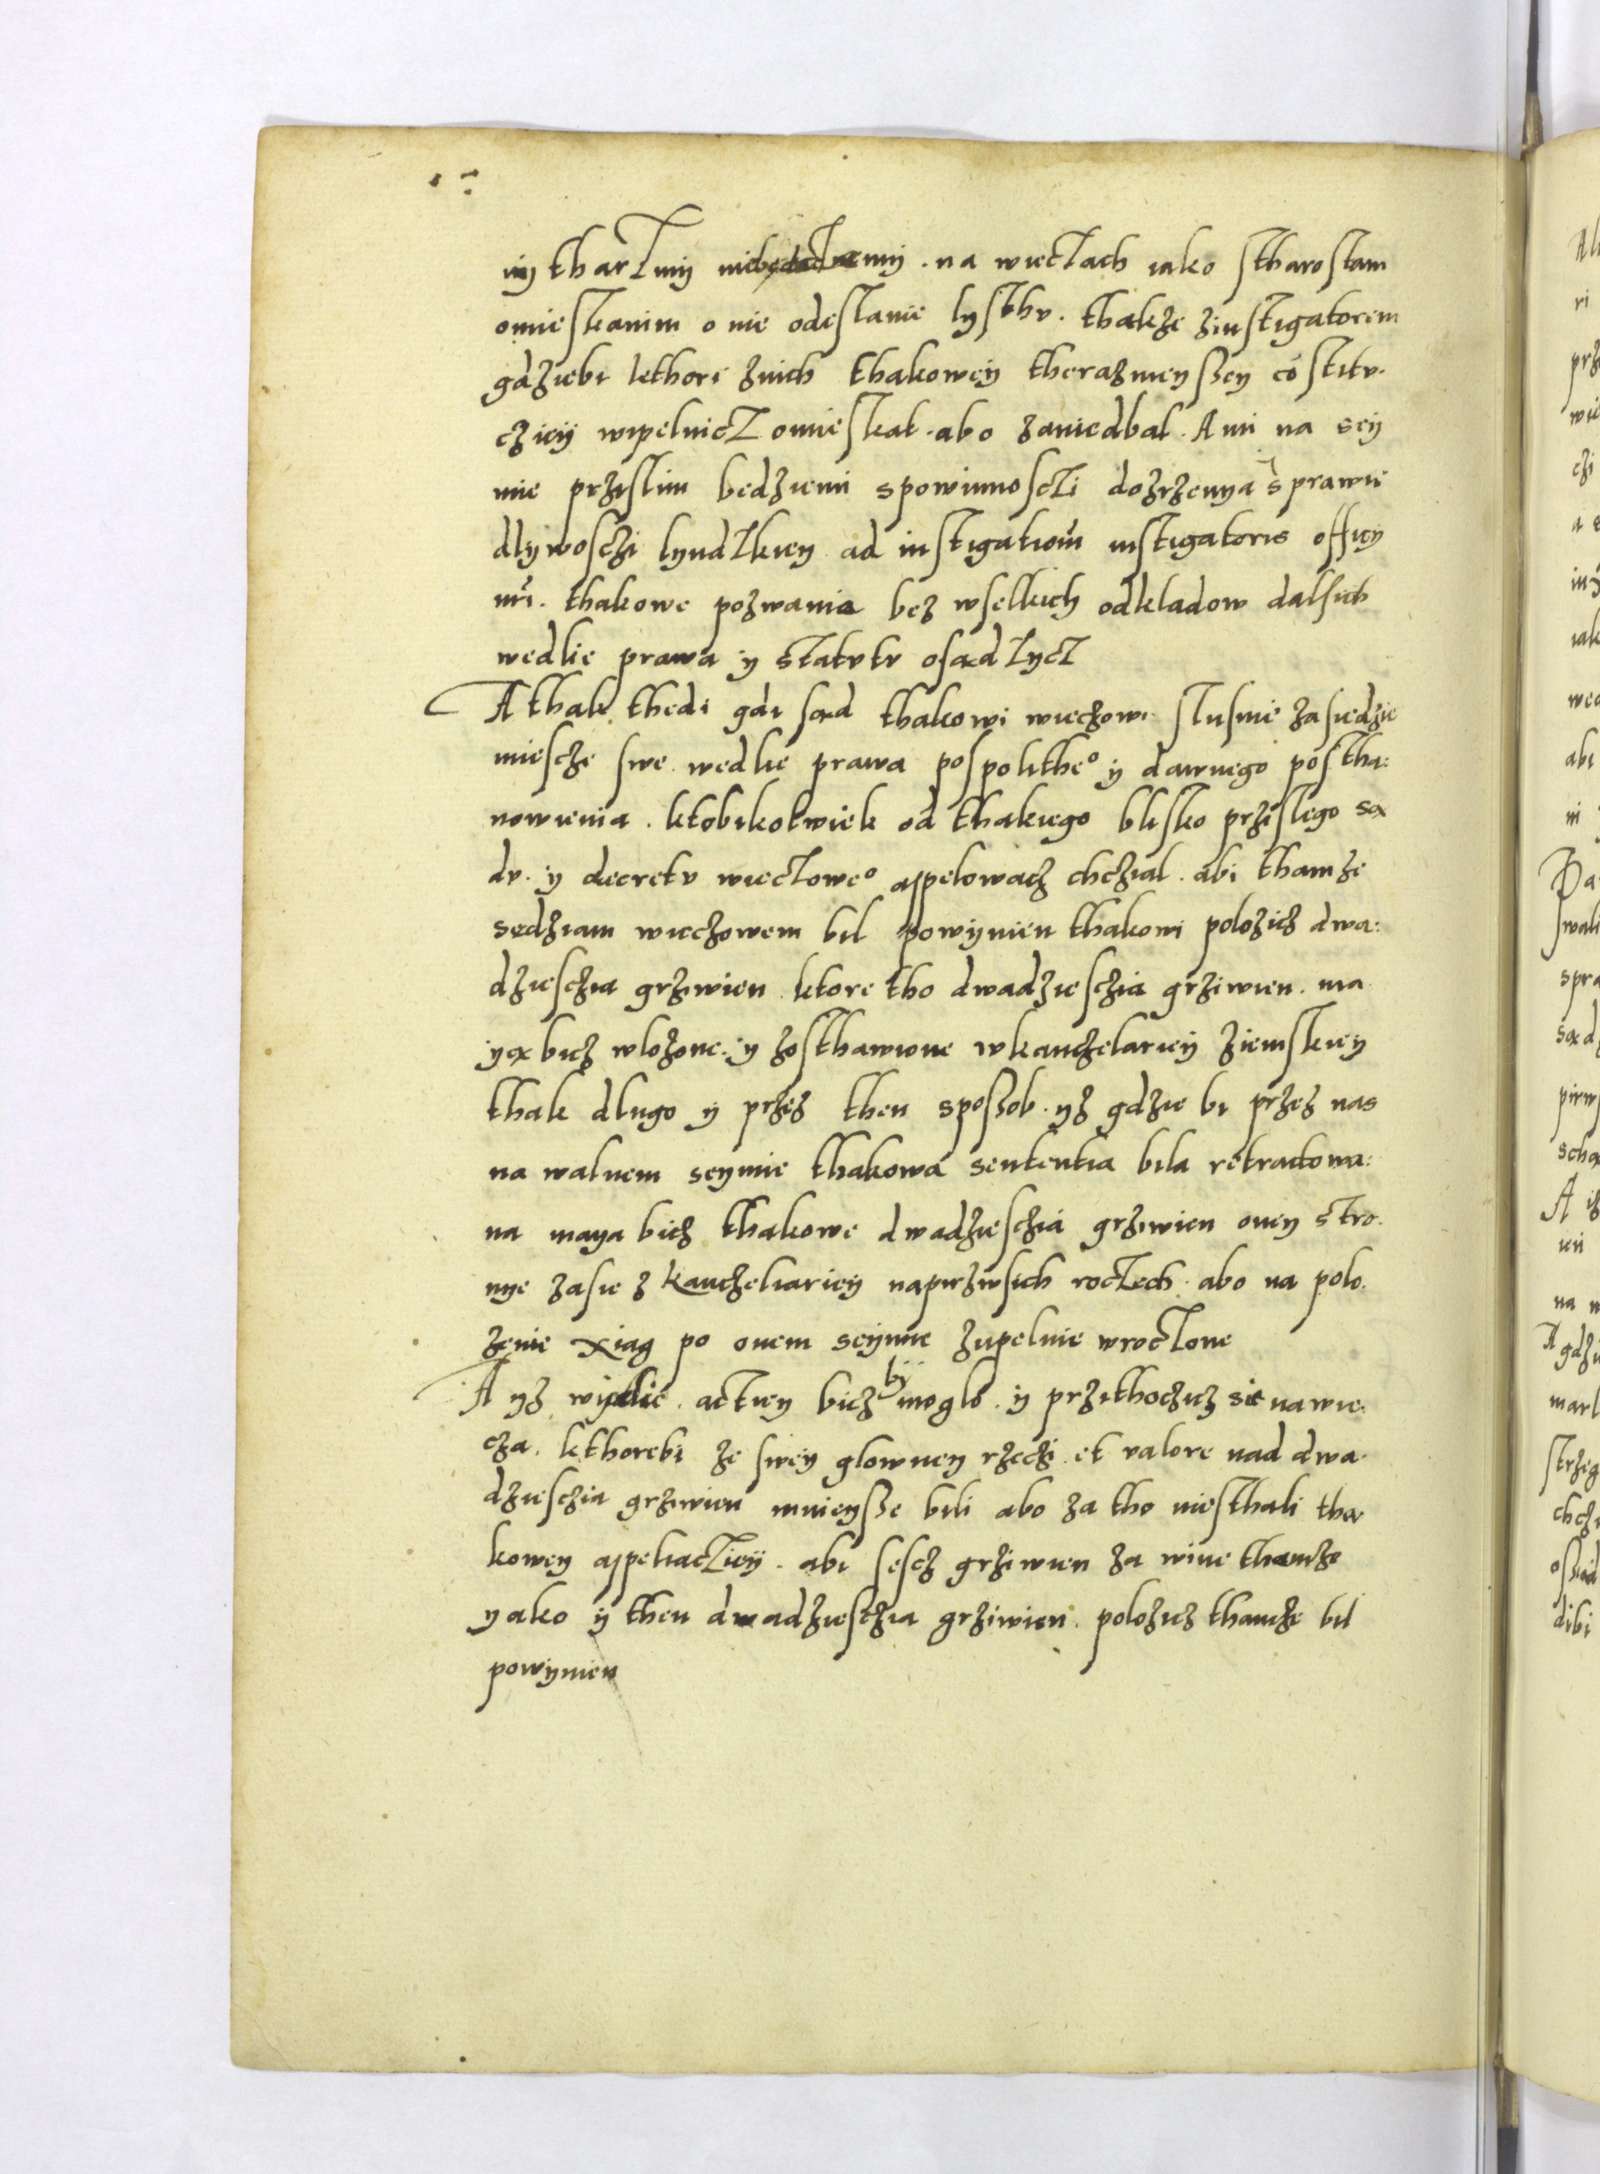 iij thartmy niebędączemy. na wieczach iako stharostam
omieskanim o nie odeslanie lysthv. thakze z instigatorem
gdziebi kthori znich thakowey theraznieyssey cōstitv.
cziey wipelnicz omieskal. abo zaniedbal. A mi na sey
mie przislim bedziemi spowinnosczi dozrzenya sprawie
dlywosczi lyudzkiey ad instigationē instigatoris officy
nr̄i. thakowe pozwania bez wselkich odkladow dalsich
wedlie prawa y statvtv osadzycz
A thak thedi gdi sąd thakowi wieczowi slusnie zasiedzie
miescze swe wedlie prawa pospolitheº y dawnego postha:
nowienia. ktobikolwiek od thakiego blisko przislego są
dv. y decretv wieczoweº appelowacz chczial. abi thamze
sedziam wieczowem bil powynien thakowi polozicz dwa:
dziesczia grziwien ktore tho dwadziesczia grziwien. ma
yą bicz wlozone. y zosthawione wkanczelariey ziemskiey
thak dlugo y przez then sposzob. yz gdzie bi przez nas
na walnem seymie thakowa sententia bila retractowa:
na maya bicz thakowe dwadziesczia grziwien oney stro.
nye zasie z kanczeliariey napirzwsich roczech. abo na polo.
zenie xiag po onem seymie zupelnie wroczone
A yz wiela actiey bicz by moglo. y przithoczicz sie na wie.
cza. kthorebi ze swey glowney rzeczi et valore nad dwa.
dziesczia grziwien mnieysse bili abo za tho niesthali tha
kowey appeliacziey. abi sescz grziwien za wine thamze
yako y then dwadziesczia grziwien. polozicz thamze bil
powynien